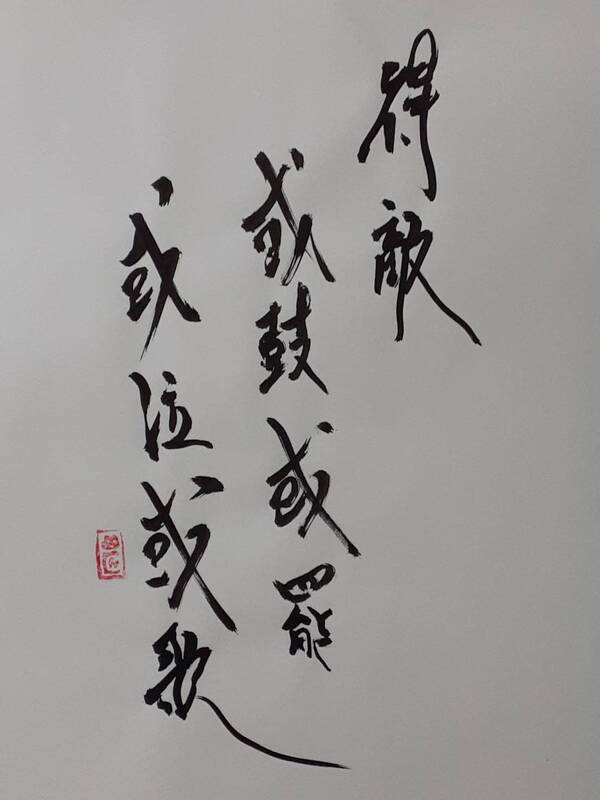 得敵
或鼓或罷
或泣或歌